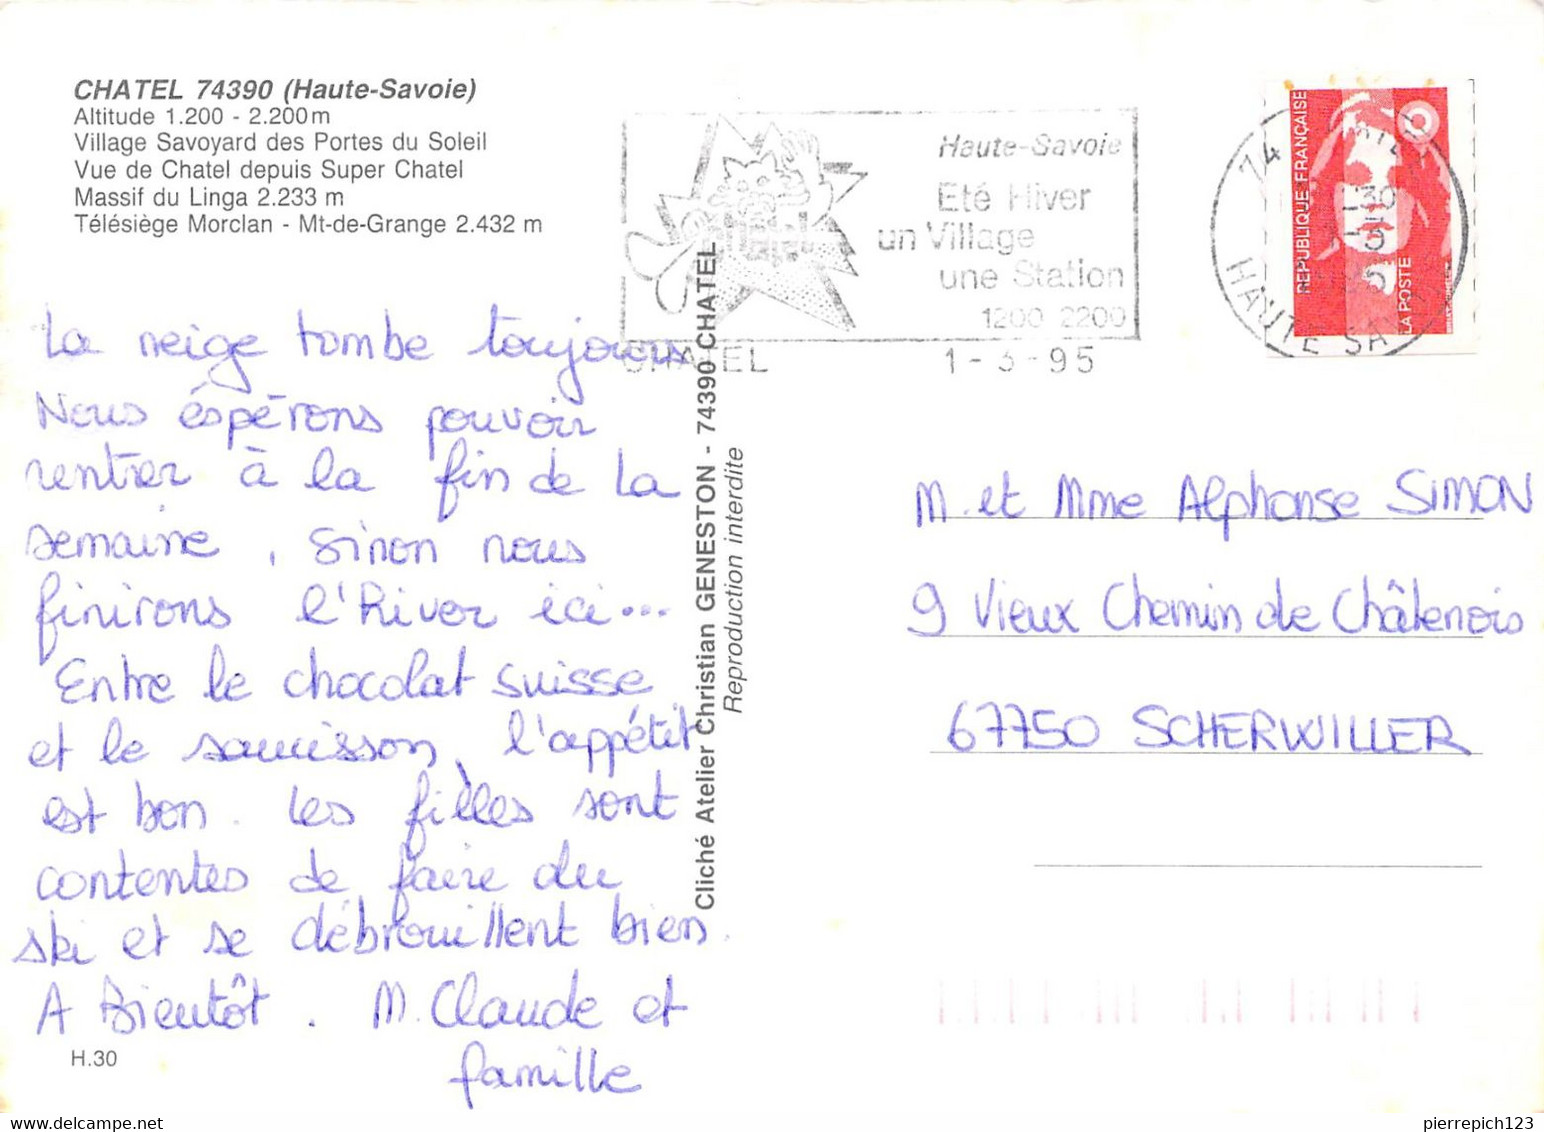 CHATEL 74390 (Haute-Savoie)
Altitude 1.200 - 2.200 m
Village Savoyard des Portes du Soleil
Vue de Chatel depuis Super Chatel
Massif du Linga 2.233 m
Télésiège Morclan - Mt-de-Grange 2.432 m
La neige tombe toujours
Nous éspérons pouvoir
rentrer à la fin de la
semaine, sinon nous
finirons l'hiver ici...
Entre le chocolat suisse
et le saucisson, l'appétit
est bon. Les filles sont
contentes de faire du
ski et se débrouillent bien.
A Bientôt. M. Claude et
famille
H.30
Cliché Atelier Christian GENESTON - 74390 CHATEL
Reproduction interdite
Chatel
Haute-Savoie
Eté Hiver
un Village
une Station
1200 2200
CHATEL 1-3-95
74
HAUTE SA
REPUBLIQUE FRANÇAISE
LA POSTE
M. et Mme Alphonse SIMON
9 Vieux Chemin de Châtenois
67750 SCHERWILLER
delcampe.net
pierrepich123